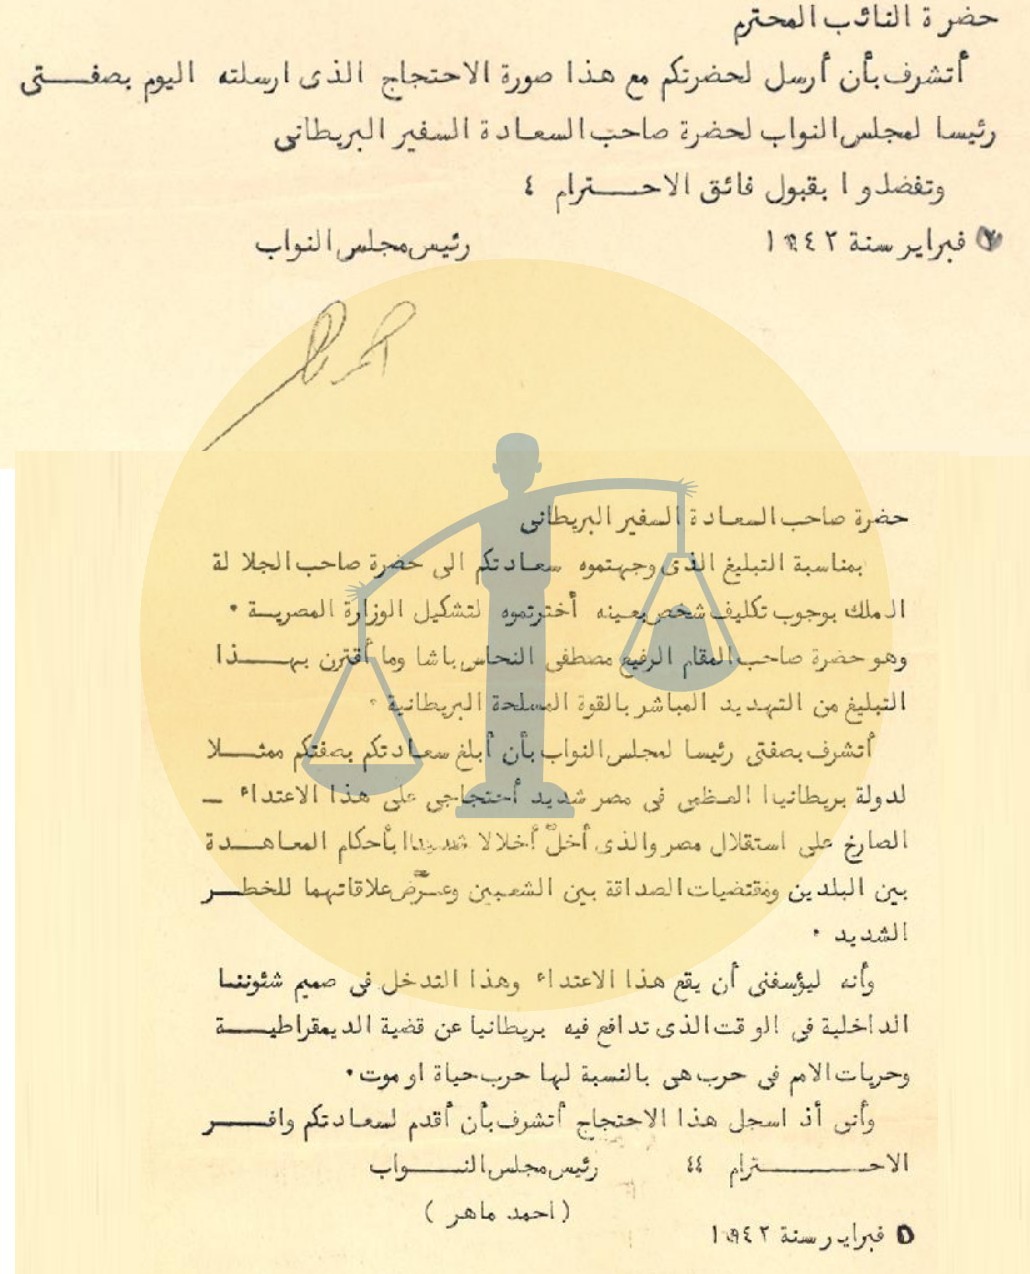 حضرة النائب المحترم
أتشرف بأن أرسل لحضرتكم مع هذا صورة الاحتجاج الذى ارسلته اليوم بصفتى
رئيسا لمجلس النواب لحضرة صاحب السعادة السفير البريطانى
وتفضلوا بقبول فائق الاحترام ٤
٧ فبراير سنة ١٩٤٢
رئيس مجلس النواب
حضرة صاحب السعادة السفير البريطانى
بمناسبة التبليغ الذى وجهتموه سعادتكم الى حضرة صاحب الجلالة
الملك بوجوب تكليف شخص بعينه أخترتموه لتشكيل الوزارة المصرية .
وهو حضرة صاحب المقام الرفيع مصطفى النحاس باشا وما أقترن بهذا
التبليغ من التهديد المباشر بالقوة المسلحة البريطانية .
أتشرف بصفتى رئيسا لمجلس النواب بأن أبلغ سعادتكم بصفتكم ممثلا
لدولة بريطانيا العظمى فى مصر شديد أحتجاجى على هذا الاعتداء ـ
الصارخ على استقلال مصر والذى أخلّ أخلالا شديدا بأحكام المعاهدة
بين البلدين ومقتضيات الصداقة بين الشعبين وعرّض علاقاتهما للخطر
الشديد .
وأنه ليؤسفنى أن يقع هذا الاعتداء وهذا التدخل فى صميم شئوننا
الداخلية فى الوقت الذى تدافع فيه بريطانيا عن قضية الديمقراطية
وحريات الامم فى حرب هى بالنسبة لها حرب حياة او موت .
وأنى أذ اسجل هذا الاحتجاج أتشرف بأن أقدم لسعادتكم وافر
الاحترام ٤٤
رئيس مجلس النواب
(احمد ماهر)
٥ فبراير سنة ١٩٤٢